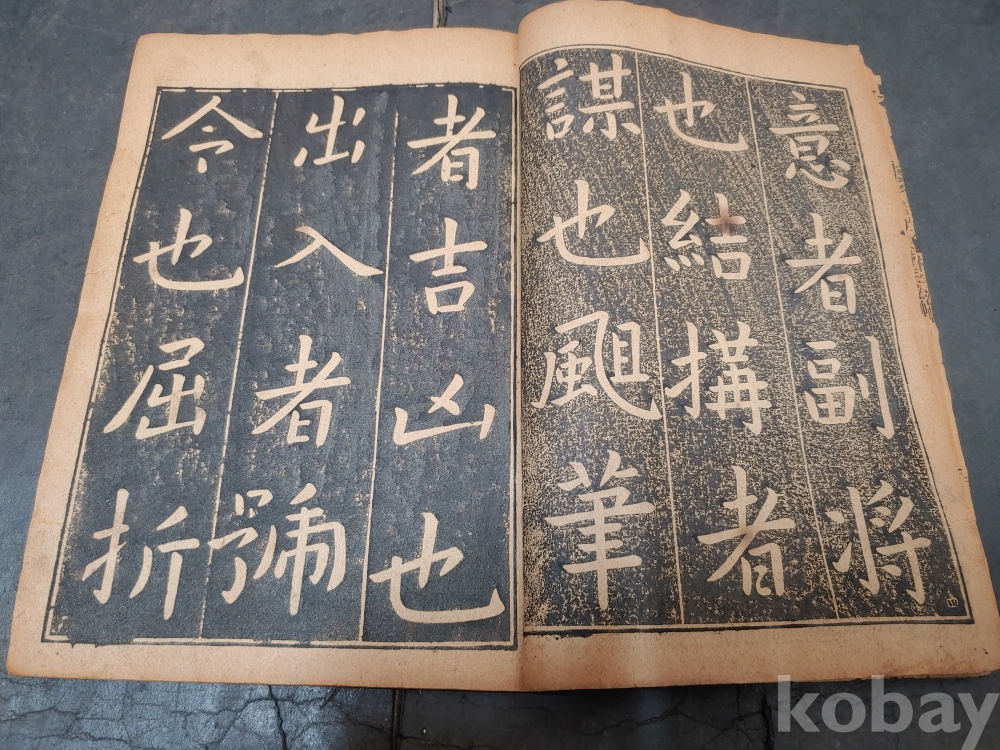 意者副将
也結搆者
謀也颶筆
者吉凶也
出入者號
令也屈折
kobay